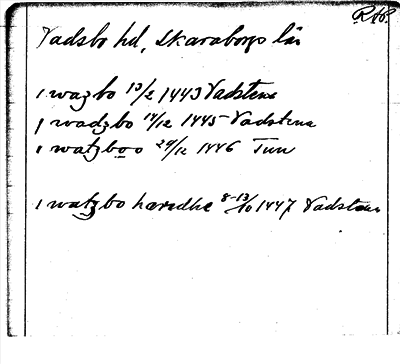 R 168
Vadsbo hd, Skaraborgs län
i wazbo 13/2 1443 Vadstena
i wadzbo 14/12 1445 Vadstena
i watzboo 29/12 1446 Tun
i watzbo hæredhe 8-13/10 1447 Vadstena